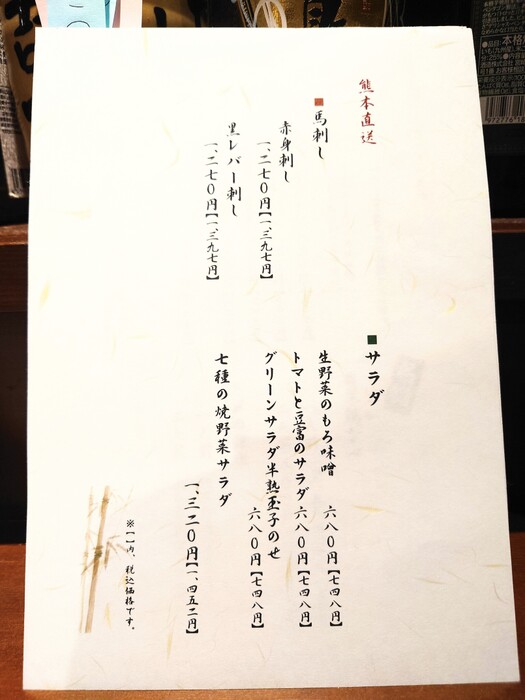 熊本直送
■馬刺し
赤身刺し
一、二七〇円【一、三九七円】
里レバー刺し
一、二七〇円【一、三九七円】
■サラダ
生野菜のもろ味噌 六八〇円【七四八円】
トマトと豆富のサラダ 六八〇円【七四八円】
グリーンサラダ半熟玉子のせ
六八〇円【七四八円】
七種の焼野菜サラダ
一、三二〇円【一、四五二円】
※【 】内、税込価格です。